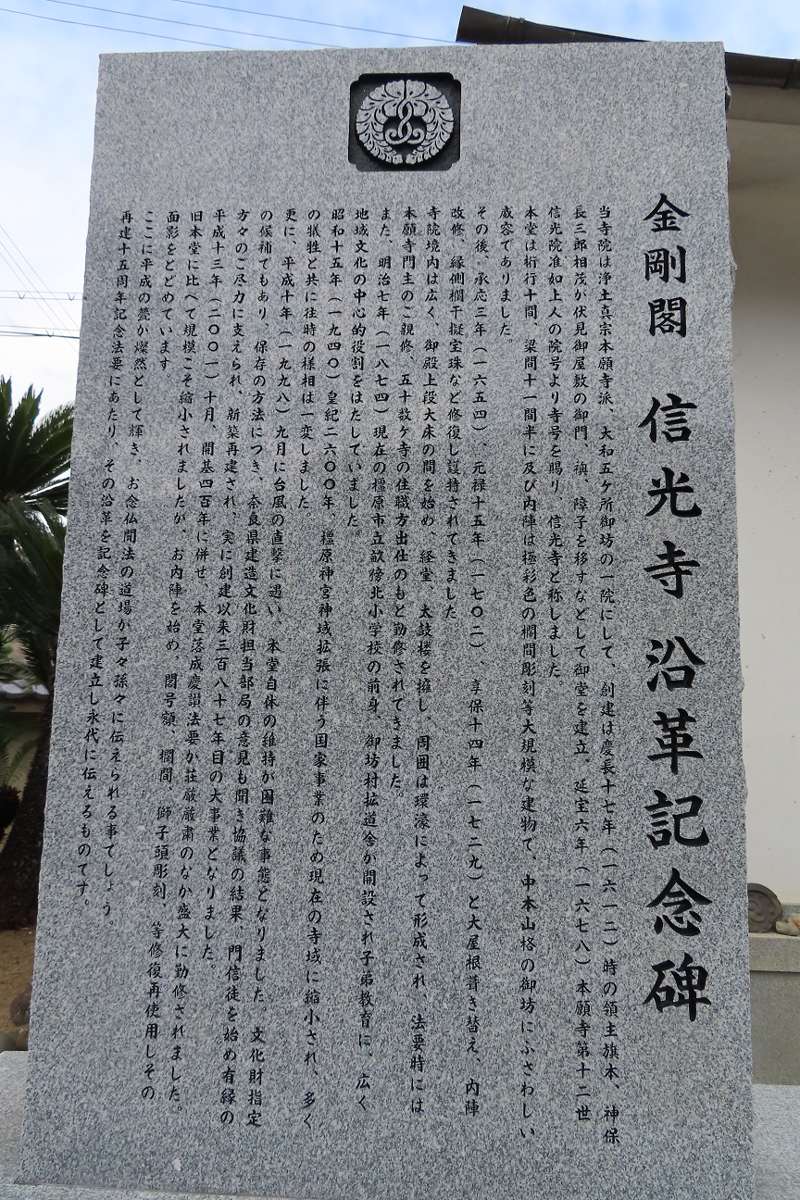 金剛閣 信光寺 沿革記念碑
当寺院は浄土真宗本願寺派、大和五ケ所御坊の一院にして、創建は慶長十七年（一六一二）時の領主旗本、神保
長三郎相茂が伏見御屋敷の御門、襖、障子を移すなどして御堂を建立 延宝六年（一六七八）本願寺第十二世
信光院准如上人の院号より寺号を賜り、信光寺と称しました。
本堂は桁行十間、梁間十一間半に及び内陣は極彩色の欄間彫刻等大規模な建物で、中本山格の御坊にふさわしい
威容でありました。
その後、承応三年（一六五四）、元禄十五年（一七〇二）、享保十四年（一七二九）と大屋根葺き替え、内陣
改修、縁側欄干擬宝珠など修復し護持されてきました
寺院境内は広く、御殿上段大床の間を始め、経堂、太鼓楼を擁し、周囲は環濠によって形成され、法要時には
本願寺門主のご親修、五十数ケ寺の住職方出仕のもと勤修されてきました。
また、明治七年（一八七四）現在の橿原市立畝傍北小学校の前身、御坊村拡道舎が開設され子弟教育に、広く
地域文化の中心的役割をはたしていました。
昭和十五年（一九四〇）皇紀二六〇〇年、橿原神宮神域拡張に伴う国家事業のため現在の寺域に縮小され、多く
の犠牲と共に往時の様相は一変しました
更に、平成十年（一九九八）九月に台風の直撃に遇い、本堂自体の維持が困難な事態となりました。文化財指定
の候補でもあり、保存の方法につき、奈良県建造文化財担当部局の意見も聞き協議の結果、門信徒を始め有縁の
方々のご尽力に支えられ、新築再建され、実に創建以来三百八十七年目の大事業となりました。
平成十三年（二〇〇一）十月、開基四百年に併せ、本堂落成慶讃法要が荘厳厳粛のなか盛大に勤修されました。
旧本堂に比べて規模こそ縮小されましたが、お内陣を始め、閣号額、欄間、獅子頭彫刻、等修復再使用しその
面影をとどめています
ここに平成の甍が燦然として輝き、お念仏聞法の道場が子々孫々に伝えられる事でしょう。
再建十五周年記念法要にあたり、その沿革を記念碑として建立し永代に伝えるものです。